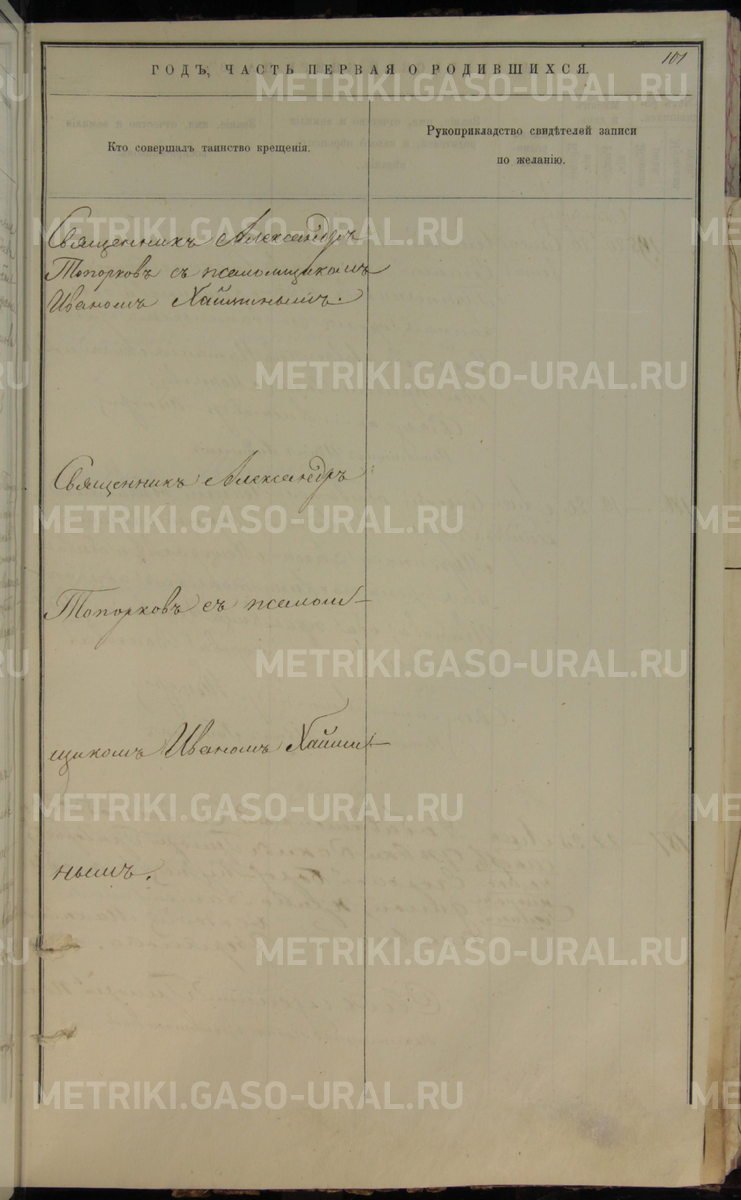 101
ГОДЪ, ЧАСТЬ ПЕРВАЯ О РОДИВШИХСЯ.
Кто совершалъ таинство крещенія.
Рукоприкладство свидѣтелей записи
по желанію.
Священникъ Александръ
Топорковъ съ псаломщикомъ
Иваномъ Хайминымъ.
Священникъ Александръ
Топорковъ съ псалом-
щикомъ Иваномъ Хайми-
нымъ.
METRIKI.GASO-URAL.RU
METRIKI.GASO-URAL.RU
METRIKI.GASO-URAL.RU
METRIKI.GASO-URAL.RU
METRIKI.GASO-URAL.RU
METRIKI.GASO-URAL.RU
METRIKI.GASO-URAL.RU
METRIKI.GASO-URAL.RU